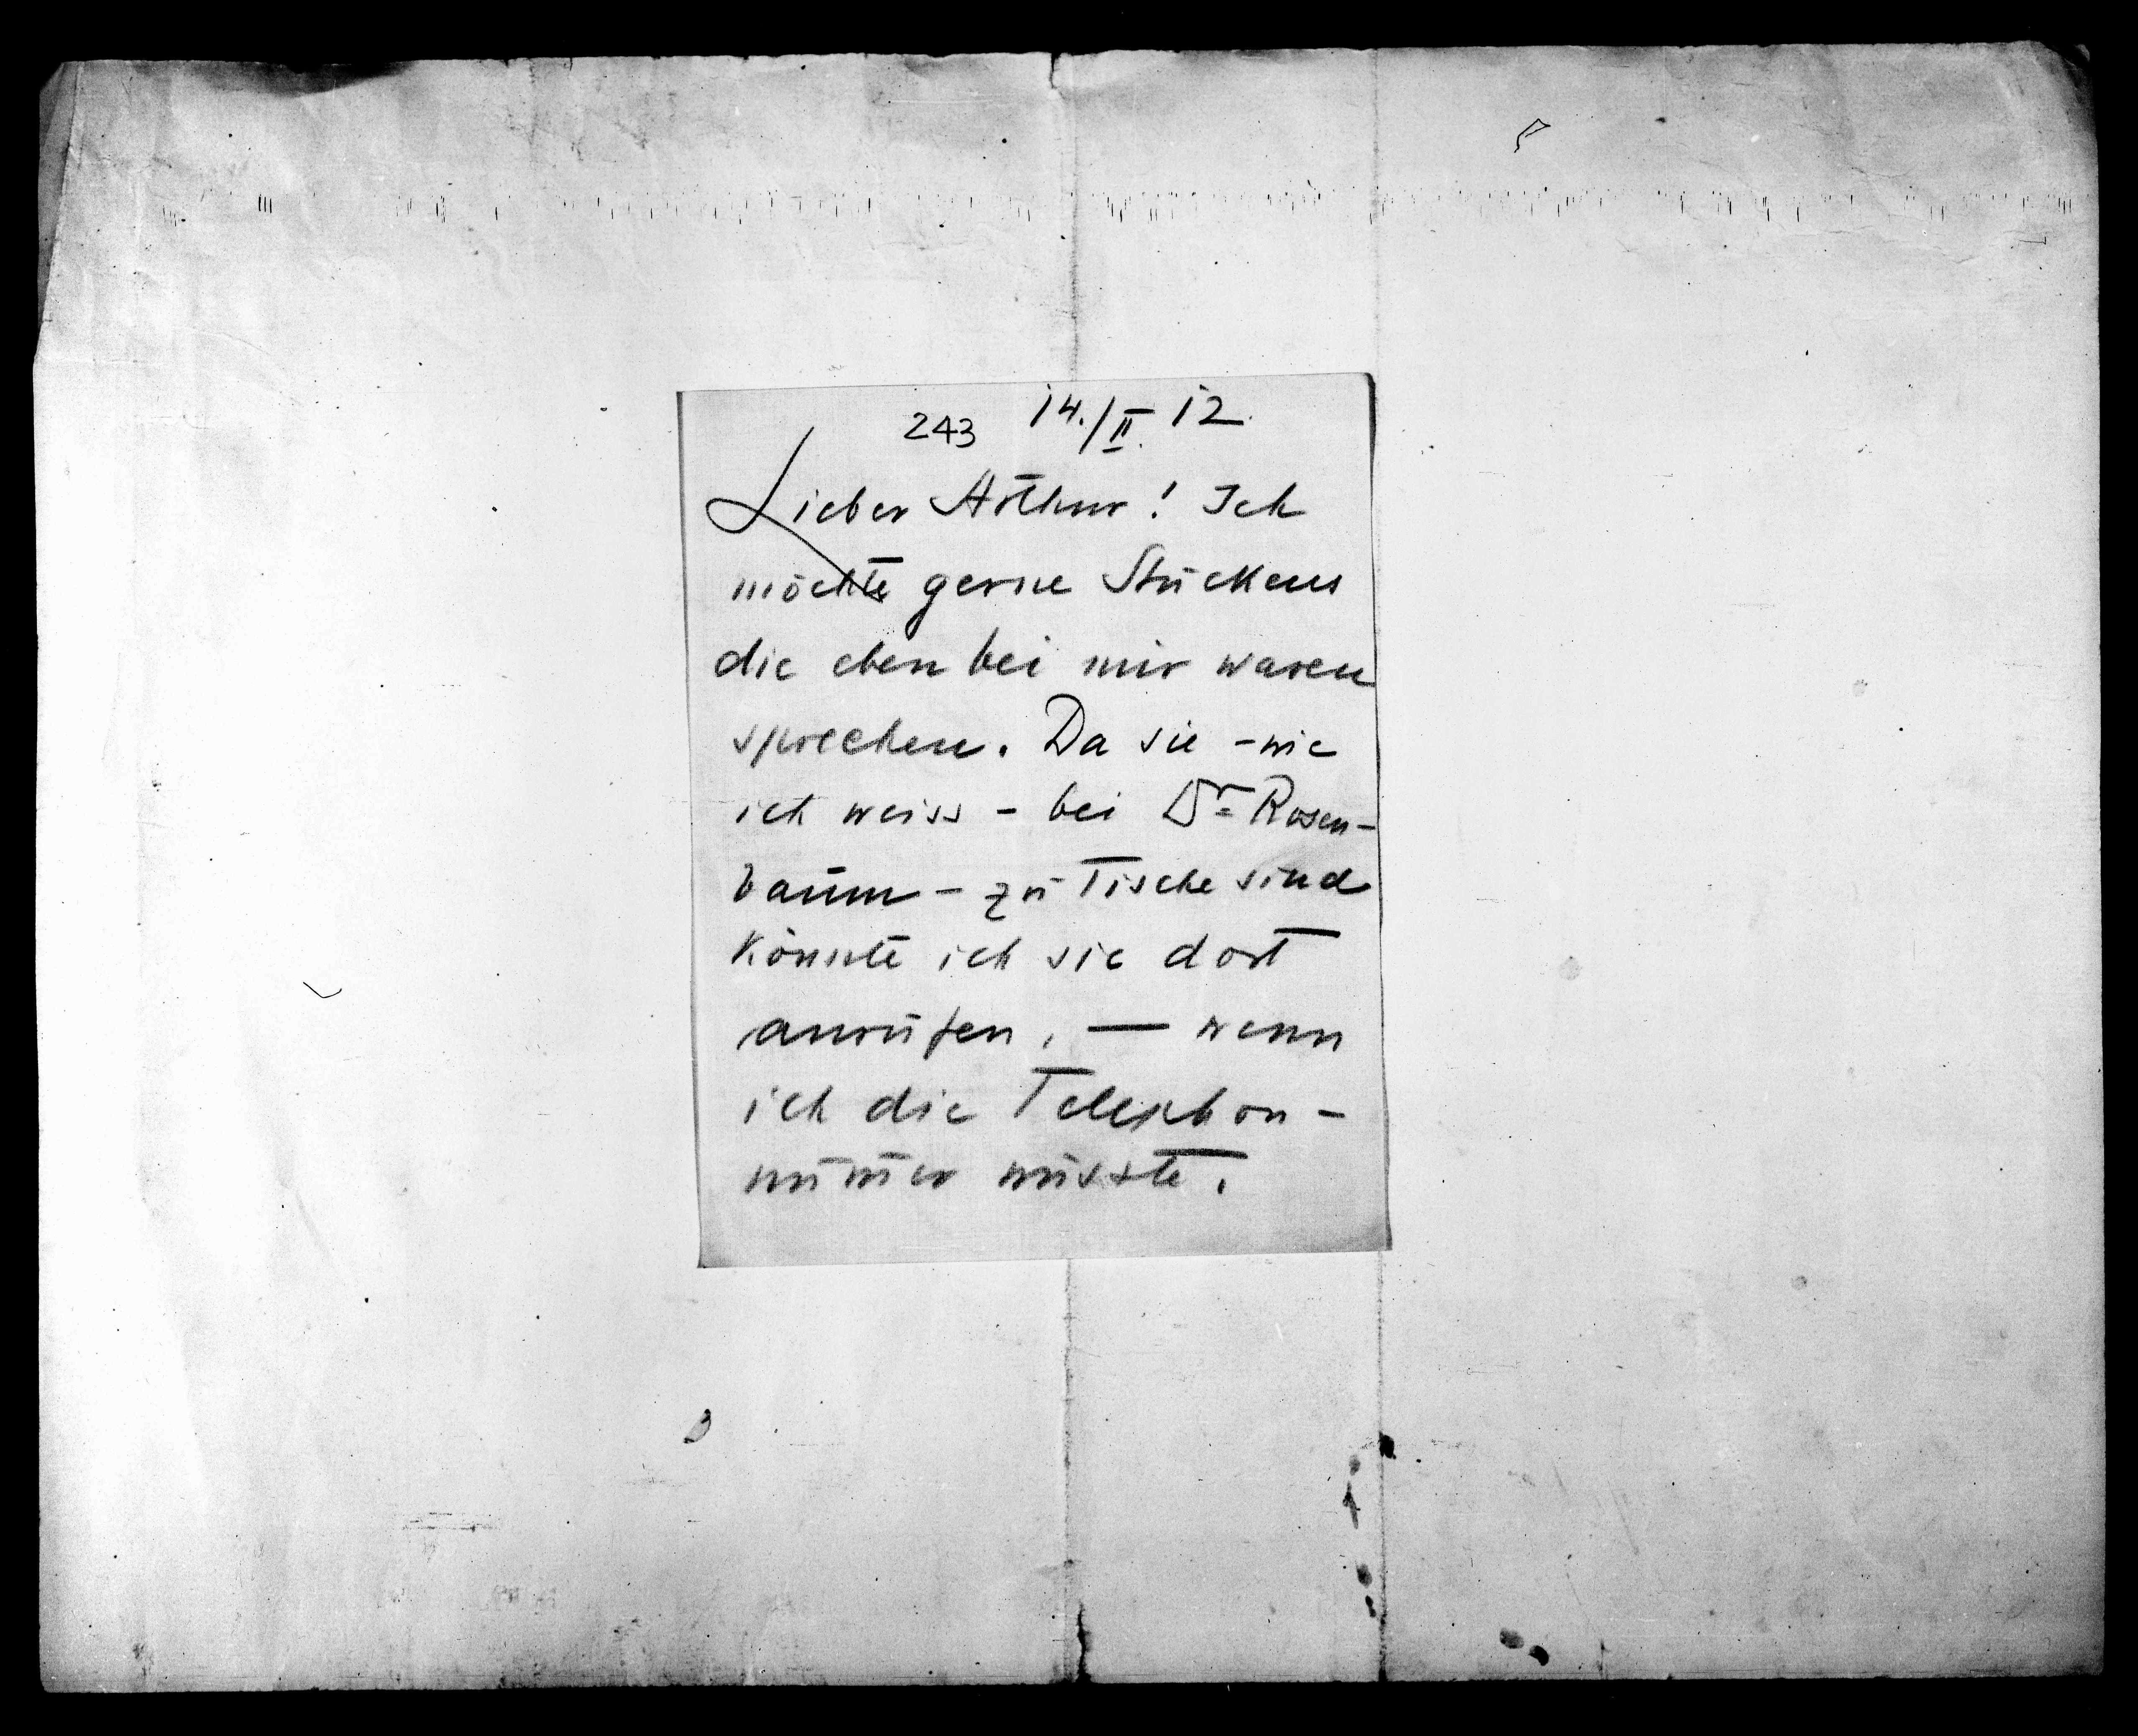 243 14./II. 12.
Lieber Arthur! Ich
möchte gerne Stuckens
die eben bei mir waren
sprechen. Da sie – wie
ich weiss – bei Dr Rosen-
baum – zu Tische sind
könnte ich sie dort
anrufen, — wenn
ich die Telephon-
num̄er wüsste.